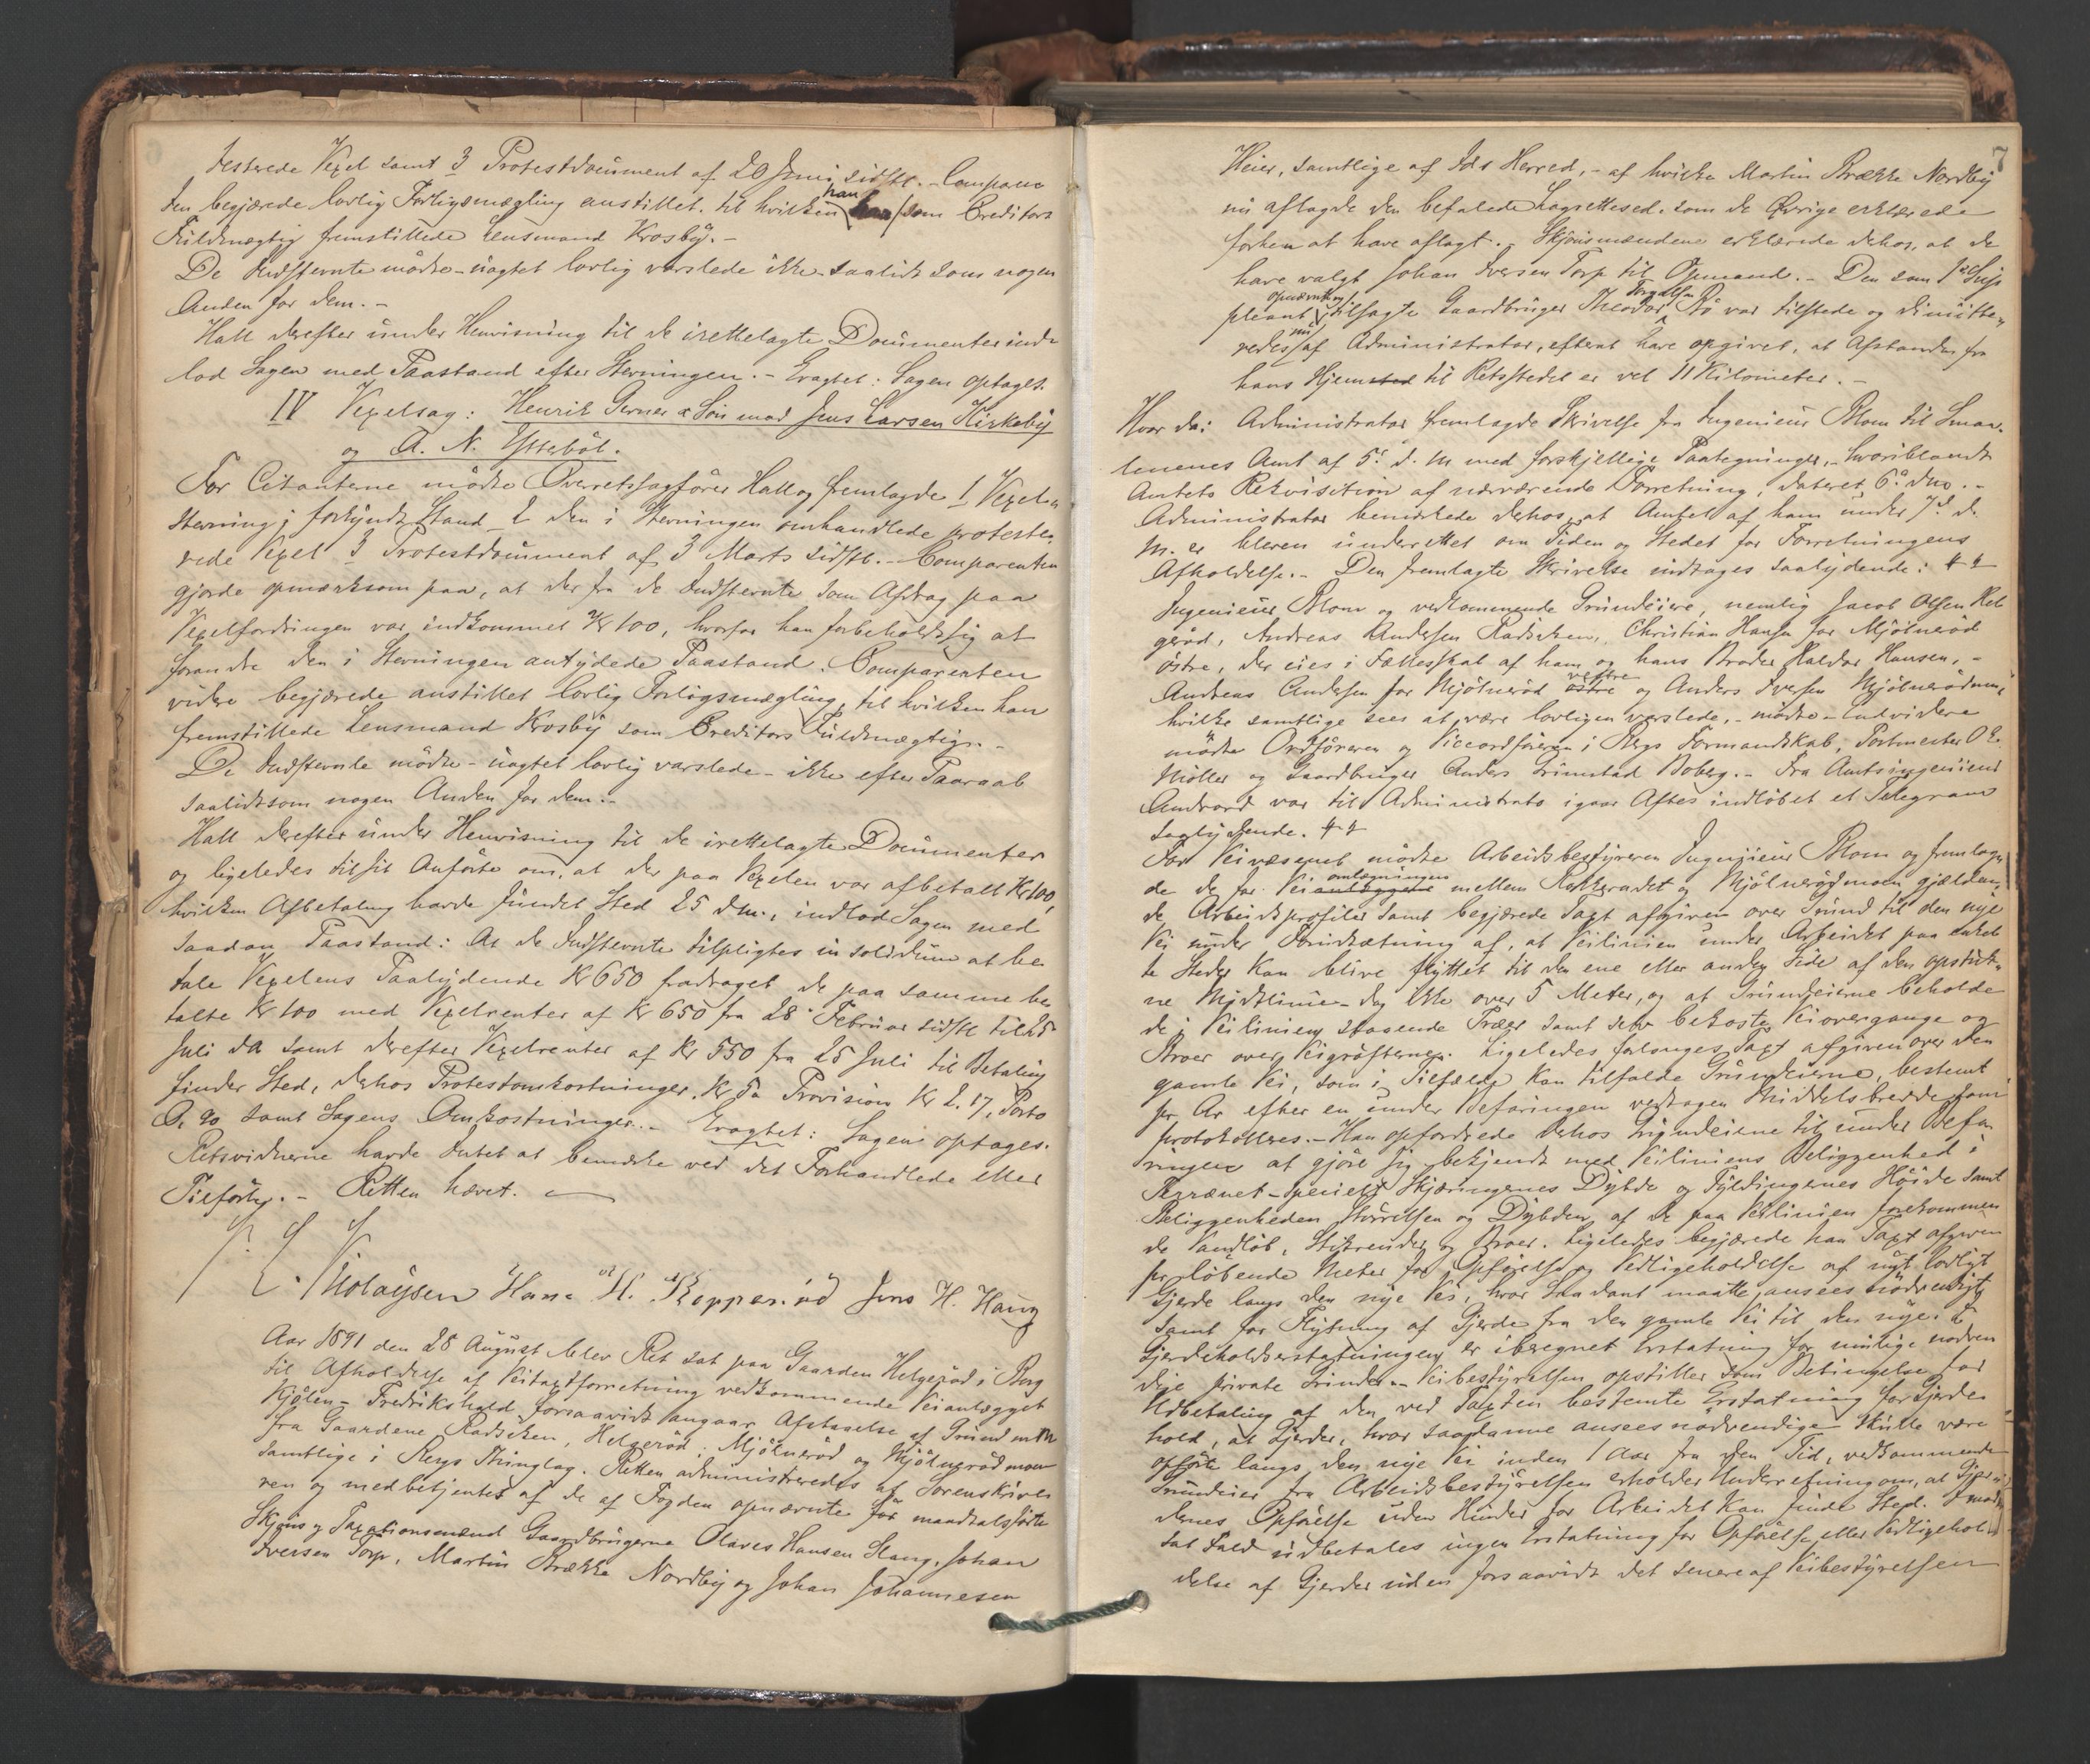 testerede Vexel samt 3 Protestdocument af 20 Juni sidstl. - Comparen
ten begjærede lovlig Forligsmægling anstillet, til hvilken han som Creditors
Fuldmægtig fremstillede Lensmand Krosby. -
De Indstevnte mødte - uagtet lovlig varslede ikke - saalidt som nogen
Anden for dem. -
Hall derefter under Henvisning til de irettelagte Documenter ind-
lod Sagen med Paastand efter Stevningen. - Eragtet: Sagen optages.
IV Vexelsag: Henrik Gerner & Søn mod Jens Larsen Kirkeby
og A. N. Ystebøl.
For Citanterne mødte Overretssagfører Hall og fremlagde 1 Vexel-
stevning i forkyndt Stand 2 den i Stevningen omhandlede proteste-
rede Vexel 3 Protestdocument af 3 Marts sidstl. - Comparenten
gjorde opmærksom paa, at der fra de Indstevnte som Afdrag paa
Vexelfordringen var indkommet Kr 100, hvorfor han forbeholdt sig at
forandre den i Stevningen antydede Paastand. Comparenten
videre begjærede anstillet lovlig Forligsmægling, til hvilken han
fremstillede Lensmand Krosby som Creditors Fuldmægtig. -
De Indstevnte mødte - uagtet lovlig varslede - ikke efter Paaraab
saalidtsom nogen Anden for dem. -
Hall derefter under Henvisning til de irettelagte Documenter
og ligeledes til sit Anførte om, at der paa Vexelen var afbetalt Kr 100,
hvilken Afbetaling havde fundet Sted 25 dm., indlod Sagen med
saadan Paastand: At de Indstevnte tilpligtes in solidum at be-
tale Vexelens Paalydende Kr 650 fradraget de paa samme be
talte Kr 100 med Vexelrenter af Kr 650 fra 28 Februar sidstl til 25
Juli da samt derefter Vexelrenter af Kr 550 fra 25 Juli til Betaling
finder Sted, dehos Protestomkostninger, Kr Provision Kr 2.17, Porto
0,20 samt Sagens Omkostninger. - Eragtet: Sagen optages.
Retsvidnerne havde Intet at bemærke ved det Forhandlede eller
Tilførte. - Retten hævet.
Nicolaysen Hans H. Kopperud Jens H. Haug
Aar 1891 den 28 August blev Ret sat paa Gaarden Helgerød i Berg
til Afholdelse af Veitaxtforretning vedkommende Veianlægget
Kjølen - Fredrikshald, forsaavidt angaar Afstaaelse af Grund m. m
fra Gaardene Radseken, Helgerød, Mjølnerød og Mjølnerødmoen
samtlige i Bergs Thinglag. Retten administreredes af Sorenskrive
ren og medbetjentes af de af Fogden opnævnte for mandtalsførte
Skjøns og Taxationsmænd Gaardbrugerne Olaves Hansen Stang, Johan
Iversen Torp, Martin Brække Nordby og Johan Johannesen
7
Heier, samtlige af Ids Herred, - af hvilke Martin Brække Nordby
nu aflagde den befalede Lagrettesed, som de Øvrige erklærede
forhen at have aflagt. - Skjønsmændene erklærede dehos, at de
have valgt Johan Iversen Torp til Opmand. - Den som 1ste Sup
pleant opnævnte og tilsagte Gaardbruger Theodor Torgalsen Bø var tilstede og dimitte-
redes nu af Administrator, efterat have opgivet, at Afstanden fra
hans Hjemsted til Retsstedet er vel 11 Kilometer. -
Hvor da: Administrator fremlagde Skrivelse fra Ingeniør Blom til Smaa-
lenenes Amt af 5te d. M. med forskjellige Paategninger, - hvoriblandt
Amtets Rekvisition af nærværende Forretning, dateret 6te dns. -
Administrator bemærkede dehos, at Amtet af ham under 7de d.
M. er bleven underrettet om Tiden og Stedet for Forretningens
Afholdelse. - Den fremlagte Skrivelse indtages saalydende:
Ingeniør Blom og vedkommende Grundeiere, nemlig Jacob Olsen Hel
gerød, Andreas Andersen Radseken, Christian Hansen for Mjølnerød
østre, der eies i Fællesskab af ham og hans Broder Haldor Hansen, -
Andreas Andersen for Mjølnerød vestre og Anders Iversen Mjølnerødmoen,
hvilke samtlige sees at være lovligen varslede, - mødte. Endvidere
mødte Ordføreren og Viceordføreren i Bergs Formandskab, Postmester O. E.
Møller og Gaardbruger Anders Grimstad Boberg. - Fra Amtsingeniør
var til Administrator igaar Aftes indløbet et Telegram
saalydende.
For Veivæsenet mødte Arbeidsbestyreren Ingeniør Blom og fremlag-
de de for Veiomlægningen mellem Rokkevadet og Mjølnerødmoen gjælden-
de Arbeidsprofiler samt begjærede Taxt afgiven over Grund til den nye
Vei under Forudsætning af, at Veilinien under Arbeidet paa enkel
te Steder kan blive flyttet til den ene eller anden Side af den opstuk-
ne Midtlinie - dog ikke over 5 Meter, og at Grundeierne beholde
de i Veilinien staaende Træer samt selv bekoster Veiovergange og
Broer over Veigrøfterne. Ligeledes forlanges Taxt afgiven over den
gamle Vei, som i Tilfælde kan tilfalde Grundeierne, bestemt
pr Ar efter en under Befaringen vedtagen Middelsbredde, som
protokolleres. - Han opfordrede dehos Grundeierne til under Befa
ringen at gjøre sig bekjendt med Veiliniens Beliggenhed i
Terrænet - specielt Skjæringernes Dybde og Fyldingernes Høide samt
Beliggenheden, Størrelsen og Dybden af de paa Veilinien forekommen
de Vandløb, Stikrender og Broer. Ligeledes begjærede han Taxt afgiven
pr løbende Meter for Opførelse og Vedligeholdelse af nyt lovligt
Gjerde langs den nye Vei, hvor Saadant maatte ansees nødvendigt
samt for Flytning af Gjerde fra den gamle Vei til den nye. I
Gjerdeholdserstatningen er iberegnet Erstatning for mulige nødven
dige private Grinder. - Veibestyrelsen opstiller som Betingelse for
Udbetaling af den ved Taxten bestemte Erstatning for Gjerde-
hold, at Gjerder, hvor saadanne ansees nødvendige skulle være
opført langs den nye Vei inden 1 Aar fra den Tid, vedkommende
Grundeier fra Arbeidsbestyrelsen erholder Underretning om, at Gjer-
dernes Opførelse uden Hinder for Arbeidet kan finde Sted. I mod
sat Fald udbetales ingen Erstatning for Opførelse eller Vedligehol-
delse af Gjerder uden forsaavidt det senere af Veibestyrelsen